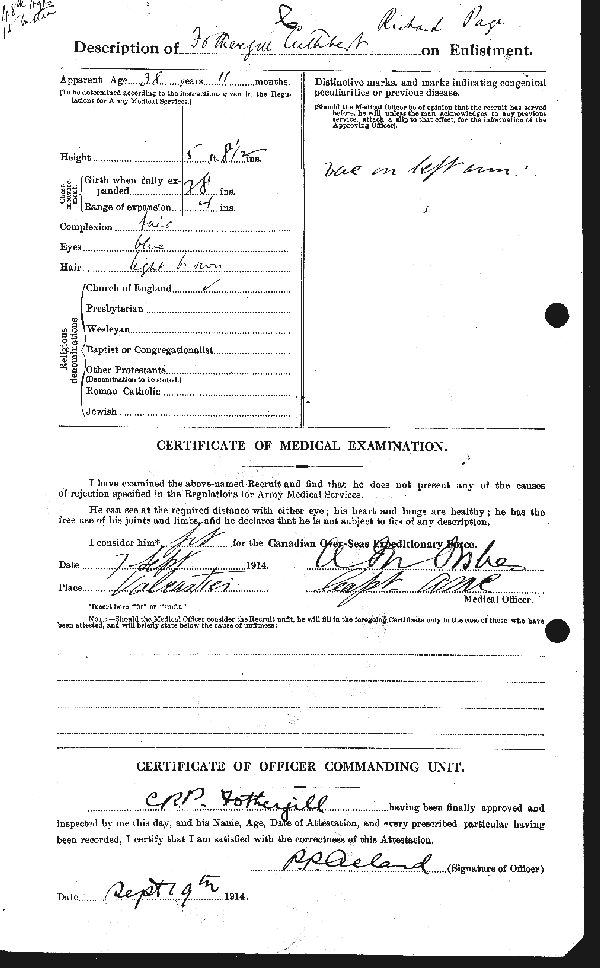 Richard Page
Description of Fothergill Cuthbert on Enlistment.
Apparent Age 38 years 11 months.
(To be determined according to the instructions given in the Regulations for Army Medical Services.)
Height 5 ft. 8 1/2 ins.
Chest measurement.
Girth when fully expanded 38 ins.
Range of expansion 4 ins.
Complexion fair
Eyes blue
Hair light brown
Religious denominations
Church of England ✓
Presbyterian
Wesleyan
Baptist or Congregationalist
Other Protestants
(Denomination to be stated.)
Roman Catholic
Jewish
Distinctive marks, and marks indicating congenital
peculiarities or previous disease.
(Should the Medical Officer be of opinion that the recruit has served
before, he will, unless the man acknowledges to any previous
service, attach a slip to that effect, for the information of the
Approving Officer).
vac on left arm.
CERTIFICATE OF MEDICAL EXAMINATION.
I have examined the above-named Recruit and find that he does not present any of the causes
of rejection specified in the Regulations for Army Medical Services.
He can see at the required distance with either eye; his heart and lungs are healthy; he has the
free use of his joints and limbs, and he declares that he is not subject to fits of any description.
I consider him* fit for the Canadian Over-Seas Expeditionary Force.
Date 7 Sept 1914.
Place Valcartier Capt AMC
Medical Officer.
*Insert here "fit" or "unfit."
NOTE.—Should the Medical Officer consider the Recruit unfit, he will fill in the foregoing Certificate only in the case of those who have
been attested, and will briefly state below the cause of unfitness:
CERTIFICATE OF OFFICER COMMANDING UNIT.
CRP. Fothergill having been finally approved and
inspected by me this day, and his Name, Age, Date of Attestation, and every prescribed particular having
been recorded, I certify that I am satisfied with the correctness of this Attestation.
(Signature of Officer)
Date Sept 19th 1914.